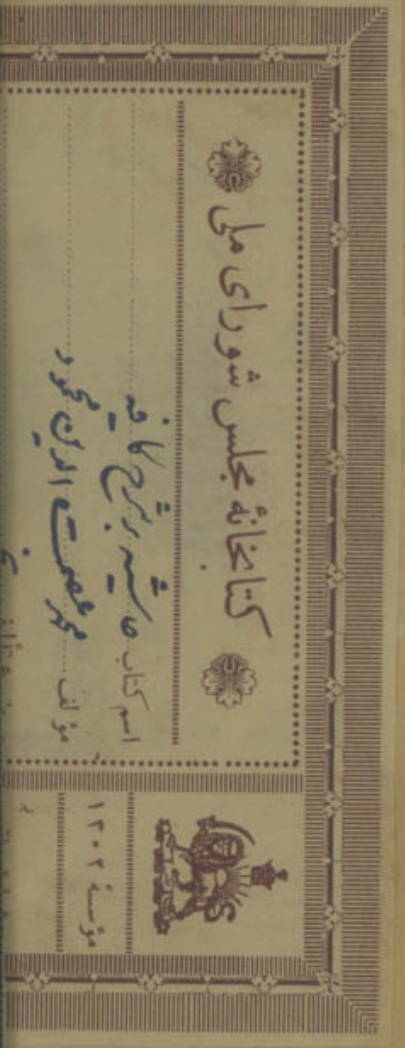 کتابخانهٔ مجلس شورای ملی
اسم کتاب حاشیه بر شرح کافیه
مؤلف محمد عصمت الدین محمود
مؤسسهٔ ۱۳۰۲